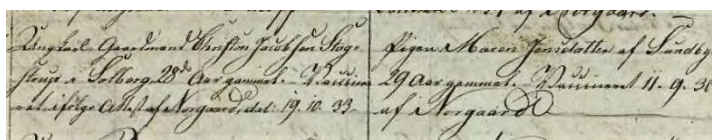 Ungkarl Gaardmand Christen Jacobsen Skoge
strup i Solberg. 28de Aar gammel. Vaccine
ret ifølge Attest af Norgaard, dat: 19.10.33.
Pigen Maren Jensdatter af Sundby
29 Aar gammel. Vaccineret 11.9.30
af Norgaard